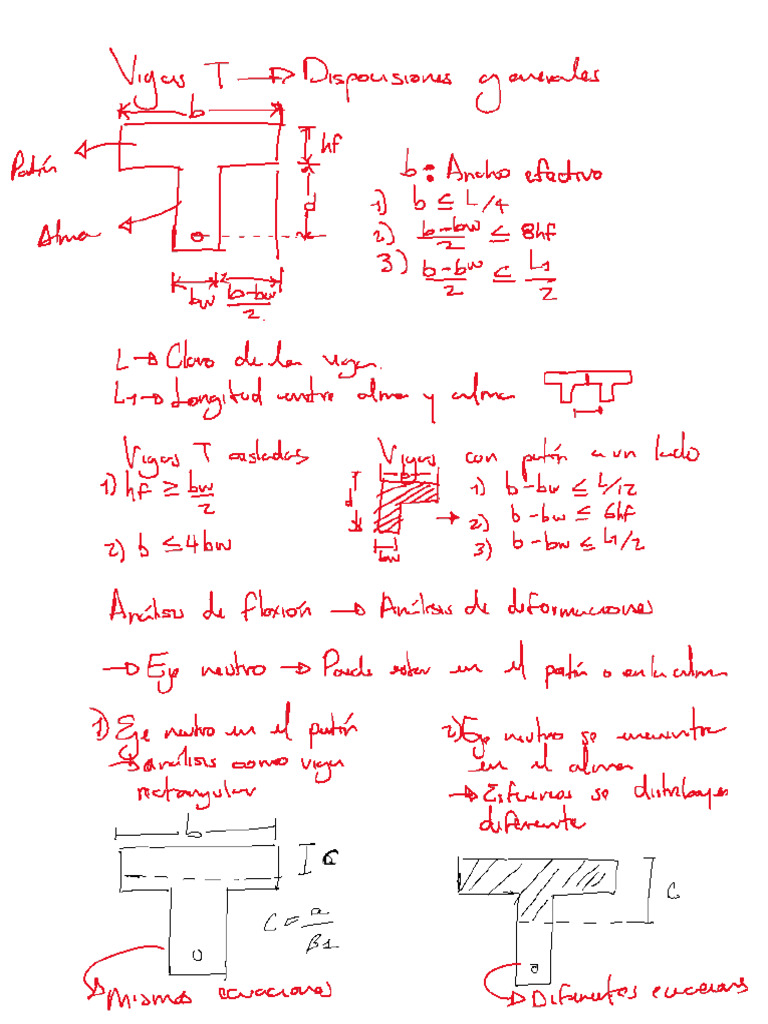 Vigas T → Disposiciones generales
b
hf
Patín
d
Alma
bw
b-bw/2
b: Ancho efectivo
1) b ≤ L/4
2) b-bw/2 ≤ 8hf
3) b-bw/2 ≤ L1/2
L → Claro de las vigas.
L1 → Longitud entre alma y alma
Vigas T aisladas
1) hf ≥ bw/2
2) b ≤ 4bw
Vigas con patín a un lado
b
d
bw
1) b-bw ≤ L/12
→ 2) b-bw ≤ 6hf
3) b-bw ≤ L1/2
Análisis de flexión → Análisis de deformaciones
→ Eje neutro → Puede estar en el patín o en la alma
1) Eje neutro en el patín
→ análisis como viga
rectangular
b
a
C = a/β1
Mismas ecuaciones
2) Eje neutro se encuentra
en el alma
→ Esfuerzos se distribuyen
diferente
C
Diferentes ecuaciones